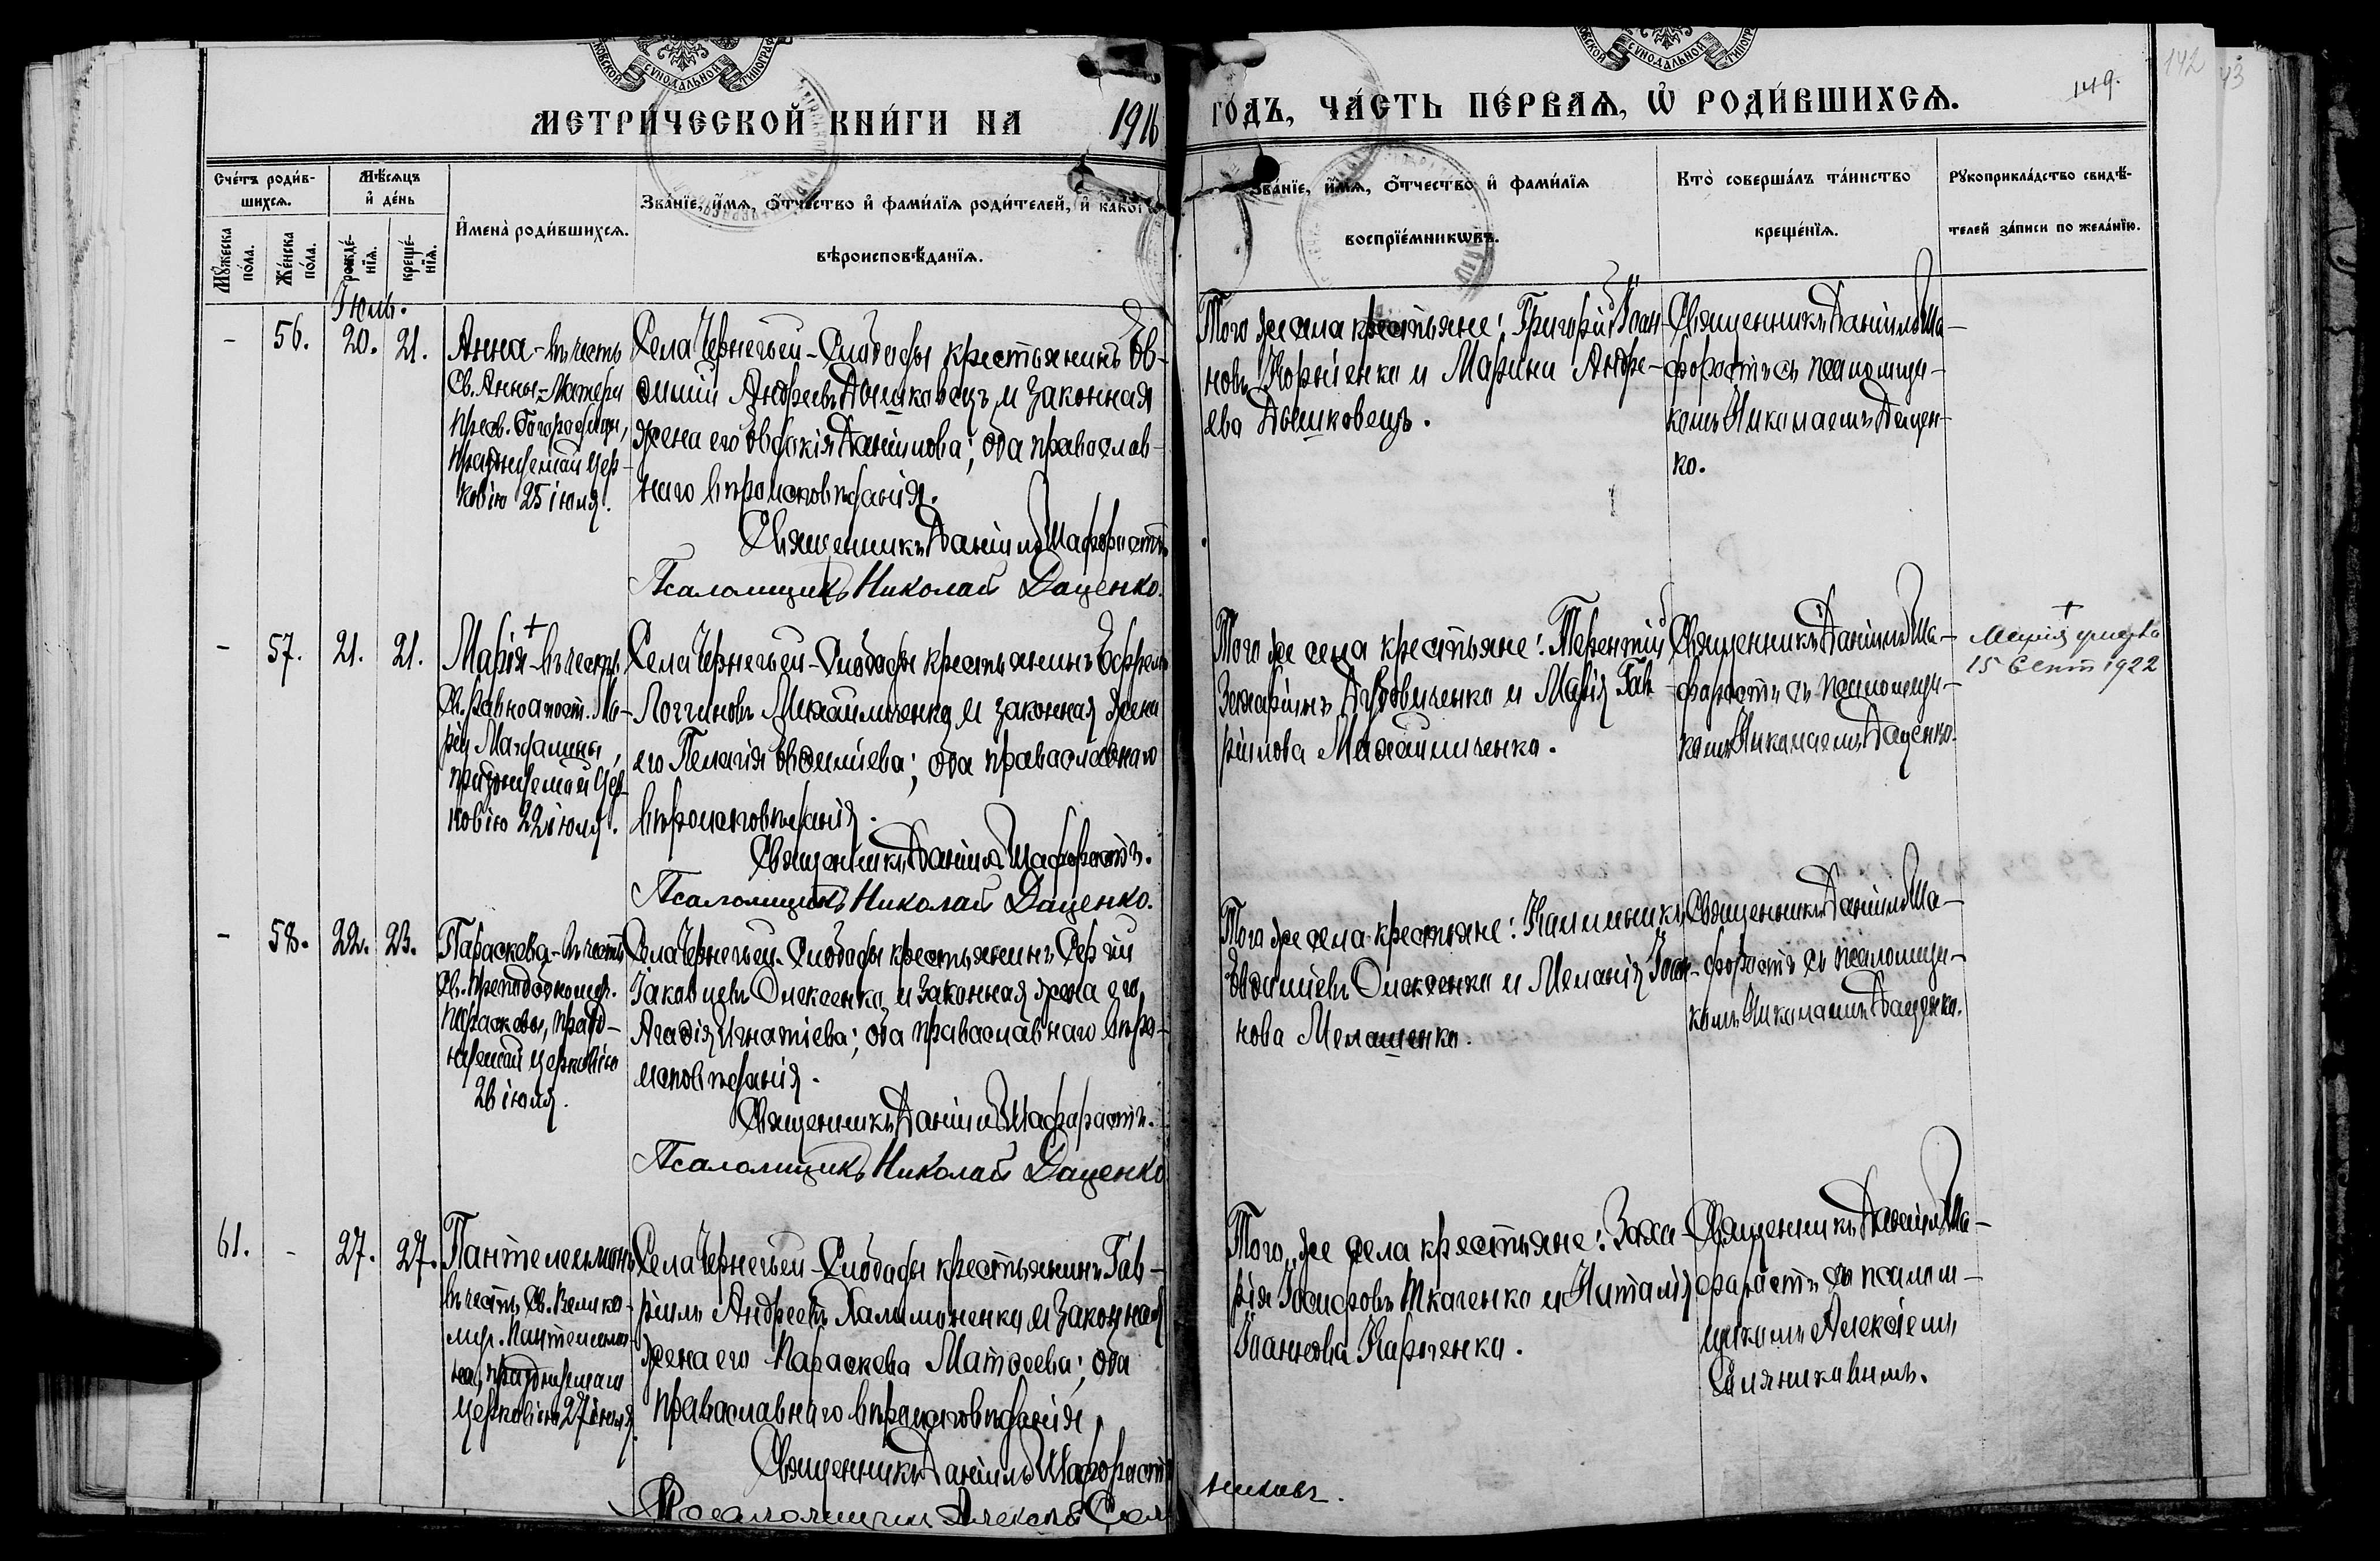 МЕТРИ́ЧЕСКОЙ КНИ́ГИ НА 1916 ГО́ДЪ, ЧА́СТЬ ПЕ́РВАЯ, Ѡ҆ РОДИ́ВШИХСЯ.
149.
142
43
Сче́тъ роди́в-
шихся.
Му́жеска по́ла.
Же́нска по́ла.
Мѣ́сяцъ
и҆ де́нь
рожде́-
нїя.
креще́-
нїя.
И҆мена̀ роди́вшихся.
Зва́нїе, и҆́мя, ѻ҆́тчество и҆ фами́лїя роди́телей, и҆ како́гѡ
вѣроисповѣ́данїя.
Зва́нїе, и҆́мя, ѻ҆́тчество и҆ фами́лїя
воспрїе́мникѡвъ.
Кто̀ соверша́лъ та́инство
креще́нїя.
Рꙋкоприкла́дство свидѣ́-
телей за́писи по жела́нїю.
Іюль.
-
56.
20.
21.
Анна - въ честь
Св. Анны - Матери
Пресв. Богородицы,
празднуемой цер-
ковію 25 іюля.
Села Чернечьей-Слободы крестьянинъ Ев-
фимій Андреевъ Дошковецъ и законная
жена его Евдокія Даніилова; оба православ-
наго вѣроисповѣданія.
Священникъ Даніилъ Шафорастъ
Псаломщикъ Николай Даценко.
Того же села крестьяне: Григорій Іоан-
новъ Корніенко и Марина Андре-
ева Дошковецъ.
Священникъ Даніилъ Ша-
форастъ съ псаломщи-
комъ Николаемъ Дацен-
ко.
-
57.
21.
21.
Марія - въ честь
Св. равноапост. Ма-
ріи Магдалины,
празднуемой Цер-
ковію 22 іюля.
Села Чернечьей-Слободы крестьянинъ Ефремъ
Логгиновъ Михайличенко и законная жена
его Пелагія Евфиміева; оба православнаго
вѣроисповѣданія.
Священникъ Даніилъ Шафорастъ.
Псаломщикъ Николай Даценко.
Того же села крестьяне: Терентій
Захаріинъ и Марія Гав-
ріилова Михайличенко.
Священникъ Даніилъ Ша-
форастъ съ псаломщи-
комъ Николаемъ Даценко.
+
Марія умерла
15 Сент 1922
-
58.
22.
23.
Параскева - въ честь
Св. Преподобномуч.
Параскевы, празд-
нуемой церковію
26 іюля.
Села Чернечьей-Слободы крестьянинъ Сергій
Іаковлевъ Олексенко и законная жена его
Агафія Игнатіева; оба православнаго вѣро-
исповѣданія.
Священникъ Даніилъ Шафорастъ.
Псаломщикъ Николай Даценко
Того же села крестьяне: Каллиникъ
Евфиміевъ Олексенко и Меланія Іоан-
нова Мелашенко.
Священникъ Даніилъ Ша-
форастъ съ псаломщи-
комъ Николаемъ Даценко.
61.
-
27.
27.
Пантелеимонъ
въ честь Св. Велико-
муч. Пантелеимо-
на, празднуемаго
церковію 27 іюля.
Села Чернечьей-Слободы крестьянинъ Гав-
ріилъ Андреевъ Халимоненко и законная
жена его Параскева Матѳеева; оба
православнаго вѣроисповѣданія.
Священникъ Даніилъ Шафорастъ
Псаломщикъ Алексѣй Сел
никовъ.
Того же села крестьяне: Заха-
рія Іосифовъ Ткаченко и Наталія
Іоаннова Карпенко.
Священникъ Даніилъ Ша-
форастъ съ псалом-
щикомъ Алексіемъ